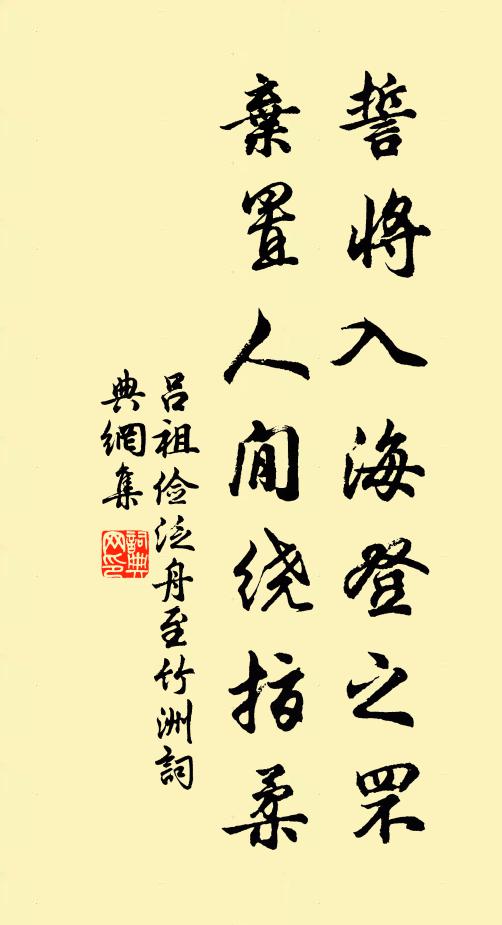 誓将入海登之罘
棄置人间绕指柔
吕祖俭泛舟至竹洲詞
典網集
詞典
网印